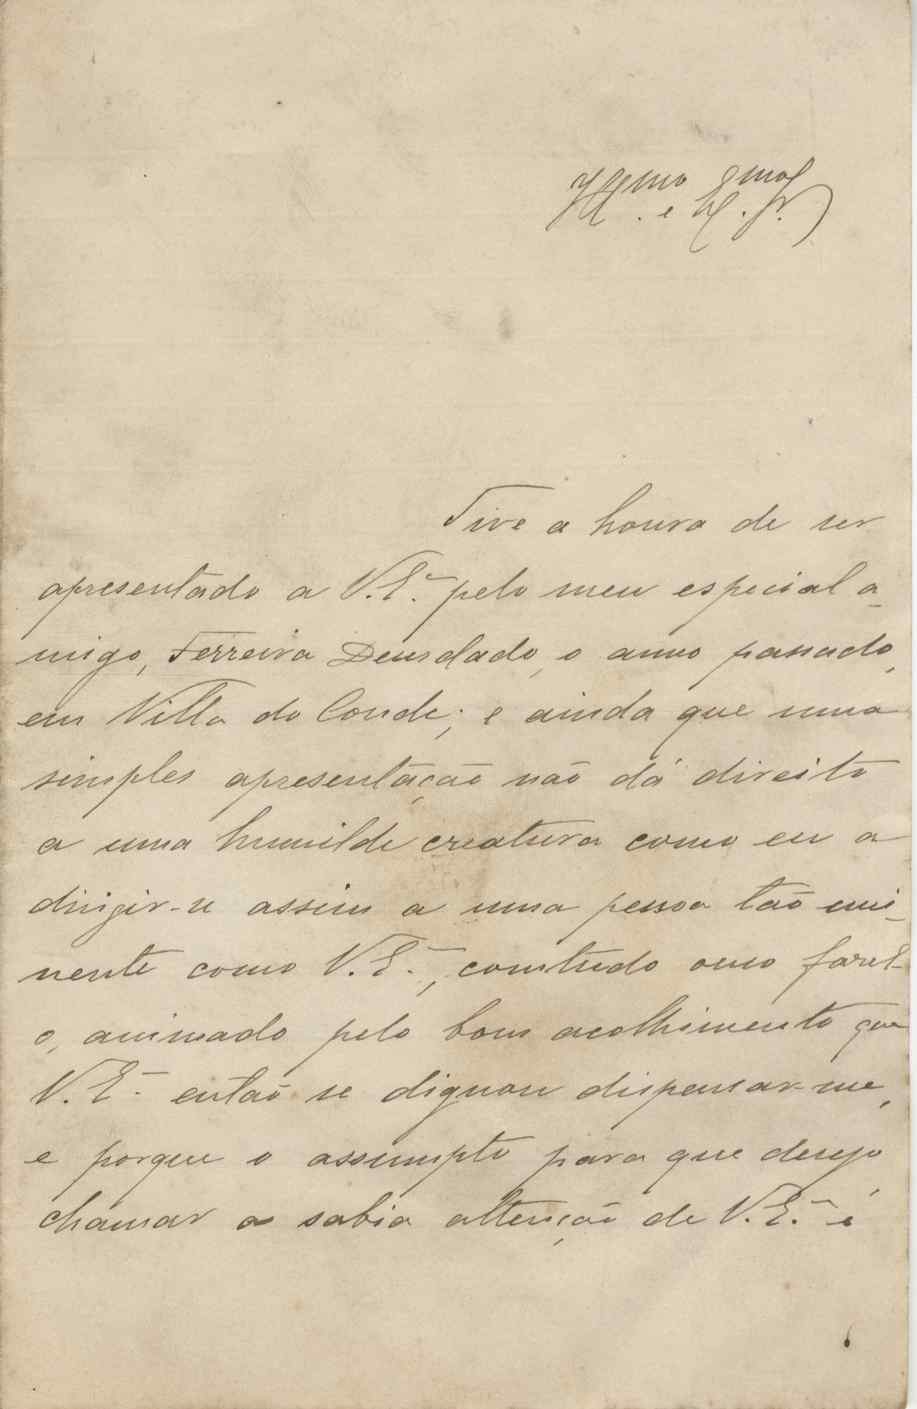 Ill.mo e Ex.mo Sr.
Tive a honra de ser
apresentado a V. E.ª pelo meu especial a-
migo, Ferreira Deusdado, o anno passado,
em Villa do Conde; e ainda que uma
simples apresentação não dá direito
a uma humilde creatura como eu a
dirigir-se assim a uma pessoa tão emi-
nente como V. E.ª, comtudo ouso fazel-
o, animado pelo bom acolhimento que
V. E.ª então se dignou dispensar-me,
e porque o assumpto para que desejo
chamar a sabia attenção de V. E.ª é